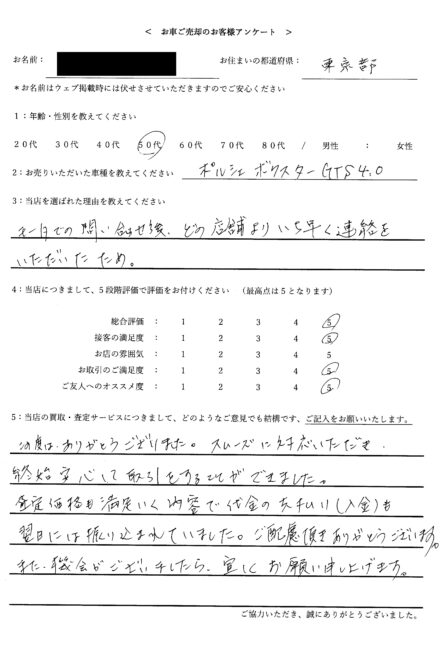 ＜ お車ご売却のお客様アンケート ＞
お名前： お住まいの都道府県： 東京都
＊お名前はウェブ掲載時には伏せさせていただきますのでご安心ください
1：年齢・性別を教えてください
20代 30代 40代 50代 60代 70代 80代 / 男性 ： 女性
2：お売りいただいた車種を教えてください ポルシェ ボクスターGTS4.0
3：当店を選ばれた理由を教えてください
ネットでの問い合わせ後、どの店舗よりいち早く連絡を
いただいたため。
4：当店につきまして、5段階評価で評価をお付けください （最高点は5となります）
総合評価 ： 1 2 3 4 5
接客の満足度 ： 1 2 3 4 5
お店の雰囲気 ： 1 2 3 4 5
お取引のご満足度 ： 1 2 3 4 5
ご友人へのオススメ度 ： 1 2 3 4 5
5：当店の買取・査定サービスにつきまして、どのようなご意見でも結構です、ご記入をお願いいたします。
この度は、ありがとうございました。スムーズに対応いただき、
終始安心して取引をすることができました。
査定価格も満足いく内容で代金の支払い(入金)も
翌日には振り込まれていました。ご配慮頂きありがとうございます。
また、機会がございましたら、宜しくお願い申し上げます。
ご協力いただき、誠にありがとうございました。